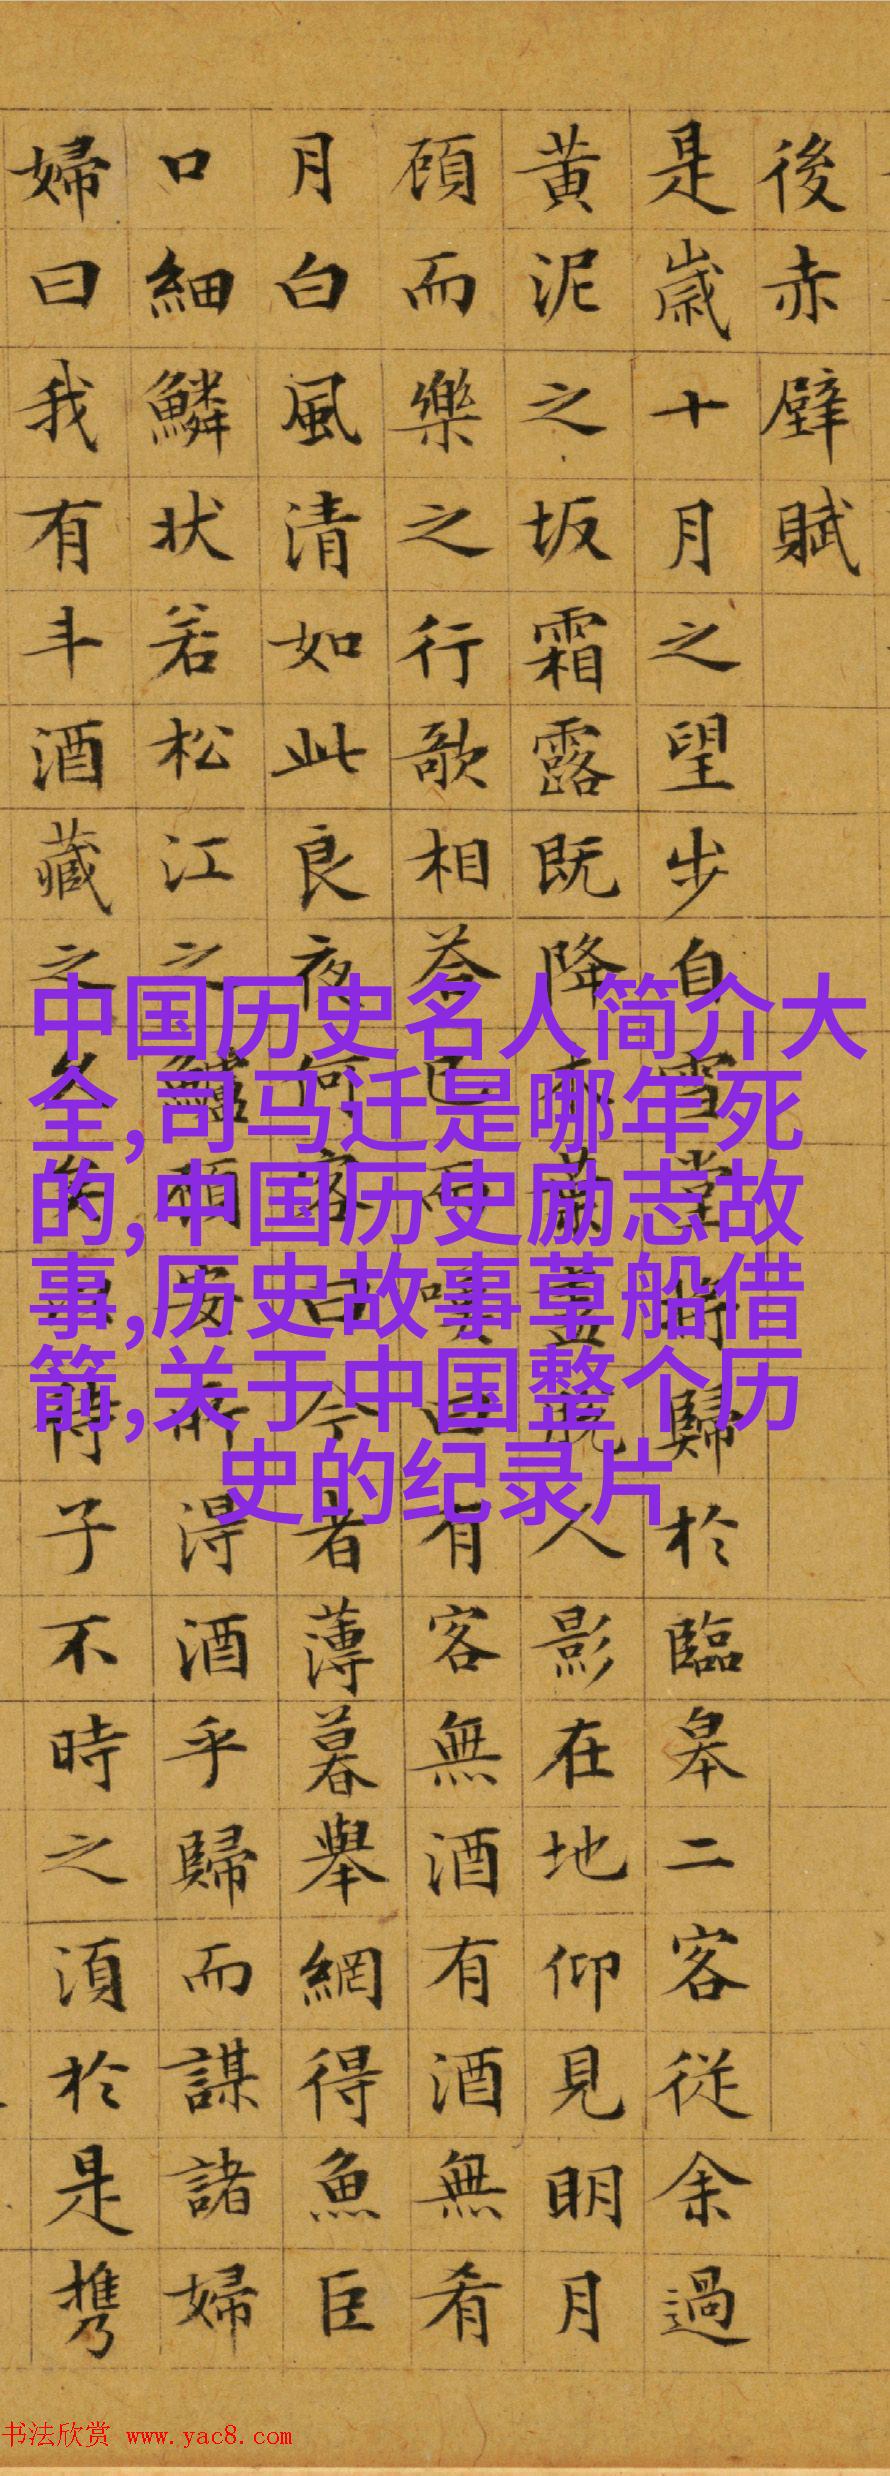 後赤壁賦
是歲十月之望步自雪堂將歸於臨皋二客從余過
黃泥之坂霜露既降木葉盡脫人影在地仰見明月
頋而樂之行歌相荅已而嘆曰有客無酒有酒無肴
月白風清如此良夜何客曰今者薄暮舉網得魚臣
口細鱗狀若松江之鱸頋安所得酒乎歸而謀諸婦
婦曰我有斗酒藏之久矣以待子不時之須於是携
中国历史名人简介大
全,司马迁是哪年死
的,中国历史励志故
事,历史故事草船借
箭,关于中国整个历
史的纪录片
书法欣赏 www.yac8.com